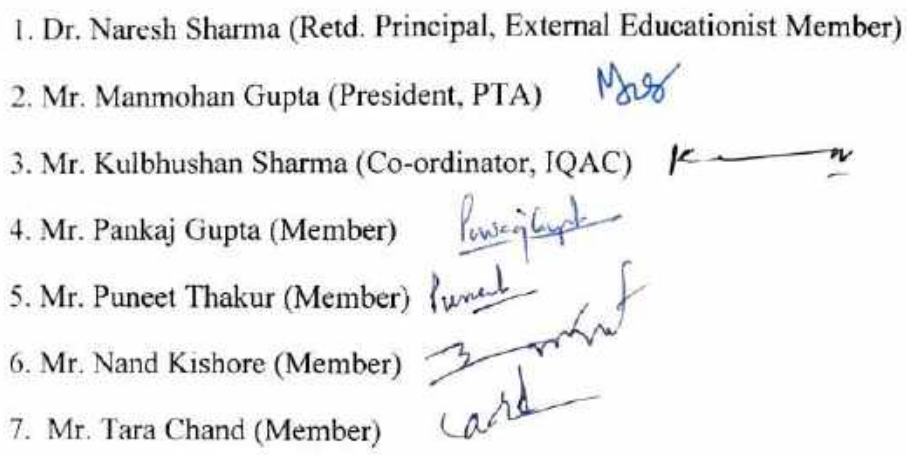 1. Dr. Naresh Sharma (Retd. Principal, External Educationist Member)
2. Mr. Manmohan Gupta (President, PTA)
3. Mr. Kulbhushan Sharma (Co-ordinator, IQAC)
4. Mr. Pankaj Gupta (Member) Pankaj Gupta
5. Mr. Puneet Thakur (Member) Puneet
6. Mr. Nand Kishore (Member)
7. Mr. Tara Chand (Member)